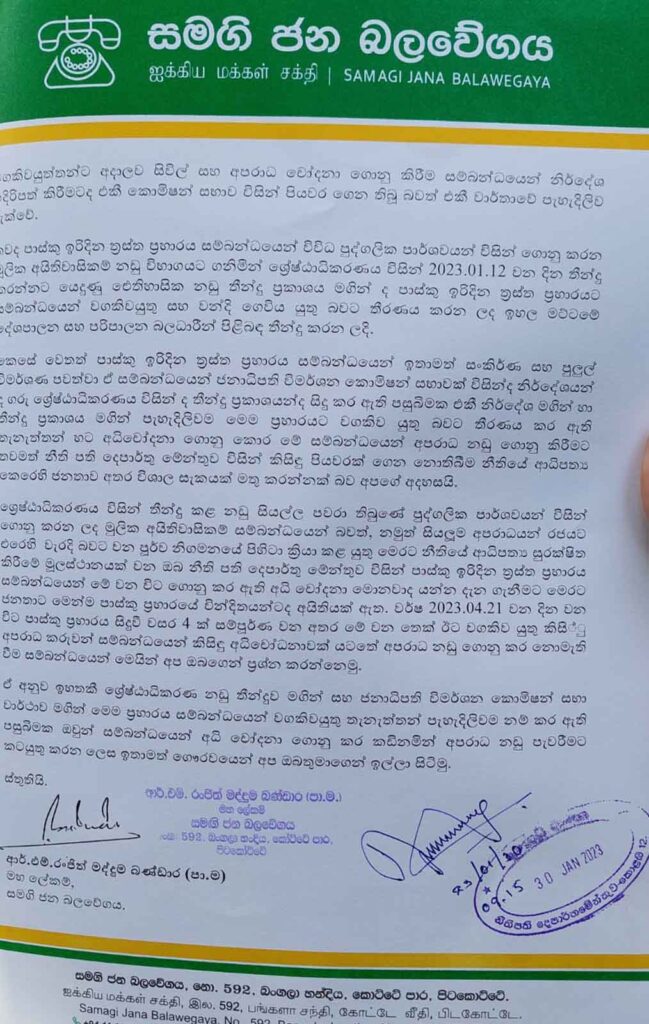 සමගි ජන බලවේගය
ஐக்கிய மக்கள் சக்தி | SAMAGI JANA BALAWEGAYA
වගකිවයුත්තන්ට අදාලව සිවිල් සහ අපරාධ චෝදනා ගොනු කිරීම සම්බන්ධයෙන් නිර්දේශ
ඉදිරිපත් කිරීමටද එකී කොමිෂන් සභාව විසින් පියවර ගෙන තිබූ බවත් එකී වාර්තාවේ පැහැදිලිව
දැක්වේ.
තවද පාස්කු ඉරිදින ත්‍රස්ත ප්‍රහාරය සම්බන්ධයෙන් විවිධ පුද්ගලික පාර්ශවයන් විසින් ගොනු කරන
මූලික අයිතිවාසිකම් නඩු විභාගයට ගනිමින් ශ්‍රේෂ්ඨාධිකරණය විසින් 2023.01.12 වන දින තීන්දු
කරන්නට යෙදුණු ඓතිහාසික නඩු තීන්දු ප්‍රකාශය මගින් ද පාස්කු ඉරිදින ත්‍රස්ත ප්‍රහාරයට
සම්බන්ධයෙන් වගකිවයුතු සහ වන්දි ගෙවිය යුතු බවට තීරණය කරන ලද ඉහල මට්ටමේ
දේශපාලන සහ පරිපාලන බලධාරීන් පිළිබඳ තීන්දු කරන ලදි.
කෙසේ වෙතත් පාස්කු ඉරිදින ත්‍රස්ත ප්‍රහාරය සම්බන්ධයෙන් ඉතාමත් සංකිර්ණ සහ පුලුල්
විමර්ශණ පවත්වා ඒ සම්බන්ධයෙන් ජනාධිපති විමර්ශන කොමිෂන් සභාවක් විසින්ද නිර්දේශයන්
ද ගරු ශ්‍රේෂ්ඨාධිකරණය විසින් ද තීන්දු ප්‍රකාශයන්ද සිදු කර ඇති පසුබිමක එකී නිර්දේශ මගින් හා
තීන්දු ප්‍රකාශය මගින් පැහැදිලිවම මෙම ප්‍රහාරයට වගකිව යුතු බවට තීරණය කර ඇති
තැනැත්තන් හට අධිචෝදනා ගොනු කොර මේ සම්බන්ධයෙන් අපරාධ නඩු ගොනු කිරීමට
තවමත් නීති පති දෙපාර්තු මේන්තුව විසින් කිසිඳු පියවරක් ගෙන නොතිබීම නීතියේ ආධිපත්‍ය
කෙරෙහි ජනතාව අතර විශාල සැකයක් මතු කරන්නක් බව අපගේ අදහසයි.
ශ්‍රේෂ්ඨාධිකරණය විසින් තීන්දු කළ නඩු සියල්ල පවරා තිබුණේ පුද්ගලික පාර්ශවයන් විසින්
ගොනු කරන ලද මූලික අයිතිවාසිකම් සම්බන්ධයෙන් බවත්, නමුත් සියලුම අපරාධයන් රජයට
එරෙහි වැරදි බවට වන පූර්ව නිගමනයේ පිහිටා ක්‍රියා කළ යුතු මෙරට නීතියේ ආධිපත්‍ය සුරක්ෂිත
කිරීමේ මූලස්ථානයක් වන ඔබ නීති පති දෙපාර්තු මේන්තුව විසින් පාස්කු ඉරිදින ත්‍රස්ත ප්‍රහාරය
සම්බන්ධයෙන් මේ වන විට ගොනු කර ඇති අධි චෝදනා මොනවාද යන්න දැන ගැනීමට මෙරට
ජනතාට මෙන්ම පාස්කු ප්‍රහාරයේ වින්දිතයන්ටද අයිතියක් ඇත. වර්ෂ 2023.04.21 වන දින වන
විට පාස්කු ප්‍රහාරය සිදුවී වසර 4 ක් සම්පූර්ණ වන අතර මේ වන තෙක් ඊට වගකිව යුතු
අපරාධ කරුවන් සම්බන්ධයෙන් කිසිඳු අධිචෝදනාවක් යටතේ අපරාධ නඩු ගොනු කර නොමැති
වීම සම්බන්ධයෙන් මෙයින් අප ඔබගෙන් ප්‍රශ්න කරන්නෙමු.
ඒ අනුව ඉහතකී ශ්‍රේෂ්ඨාධිකරණ නඩු තීන්දුව මගින් සහ ජනාධිපති විමර්ශන කොමිෂන් සභා
වාර්ථාව මගින් මෙම ප්‍රහාරය සම්බන්ධයෙන් වගකිවයුතු තැනැත්තන් පැහැදිලිවම නම් කර ඇති
පසුබිමක ඔවුන් සම්බන්ධයෙන් අධි චෝදනා ගොනු කර කඩිනමින් අපරාධ නඩු පැවරීමට
කටයුතු කරන ලෙස ඉතාමත් ගෞරවයෙන් අප ඔබතුමාගෙන් ඉල්ලා සිටිමු.
ස්තුතියි.
ආර්.එම්. රංජිත් මද්දුම බණ්ඩාර (පා.ම.)
මහ ලේකම්
සමගි ජන බලවේගය
අංක: 592, බංගලා හන්දිය, කෝට්ටේ පාර,
පිටකෝට්ටේ
23/01/30
09.15
30 JAN 2023
නීතිපති දෙපාර්තමේන්තුව-කොළඹ 12.
ආර්.එම්.රංජිත් මද්දුම බණ්ඩාර (පා.ම)
මහ ලේකම්,
සමගි ජන බලවේගය.
සමගි ජන බලවේගය, නො. 592, බංගලා හන්දිය, කොට්ටේ පාර, පිටකොට්ටේ.
ஐக்கிய மக்கள் சக்தி, இல. 592, பங்களா சந்தி, கோட்டே வீதி, பிடகோட்டே.
Samagi Jana Balawegaya, No. 592,